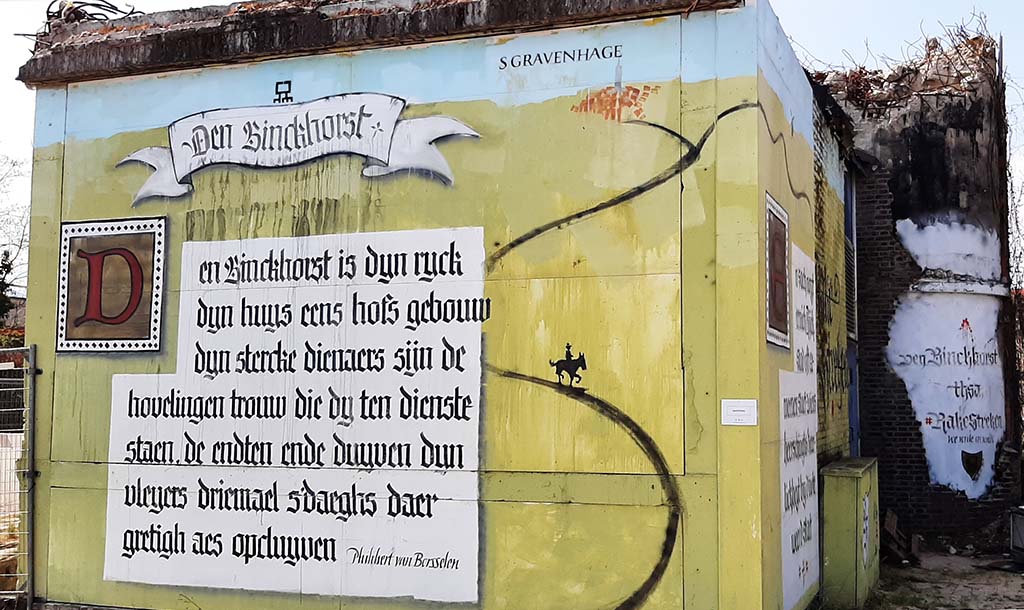 S GRAVENHAGE
Den Binckhorst
D
en Binckhorst is dyn ryck
dyn huys eens hofs gebouw
dyn stercke dienaers sijn de
hovelingen trouw die dy ten dienste
staen. de endten ende duyven dyn
vleyers driemael s'daeghs daer
gretigh aes opcluyven
Philibert van Borsselen
Den Binckhorst
thso.
#RakeStreken